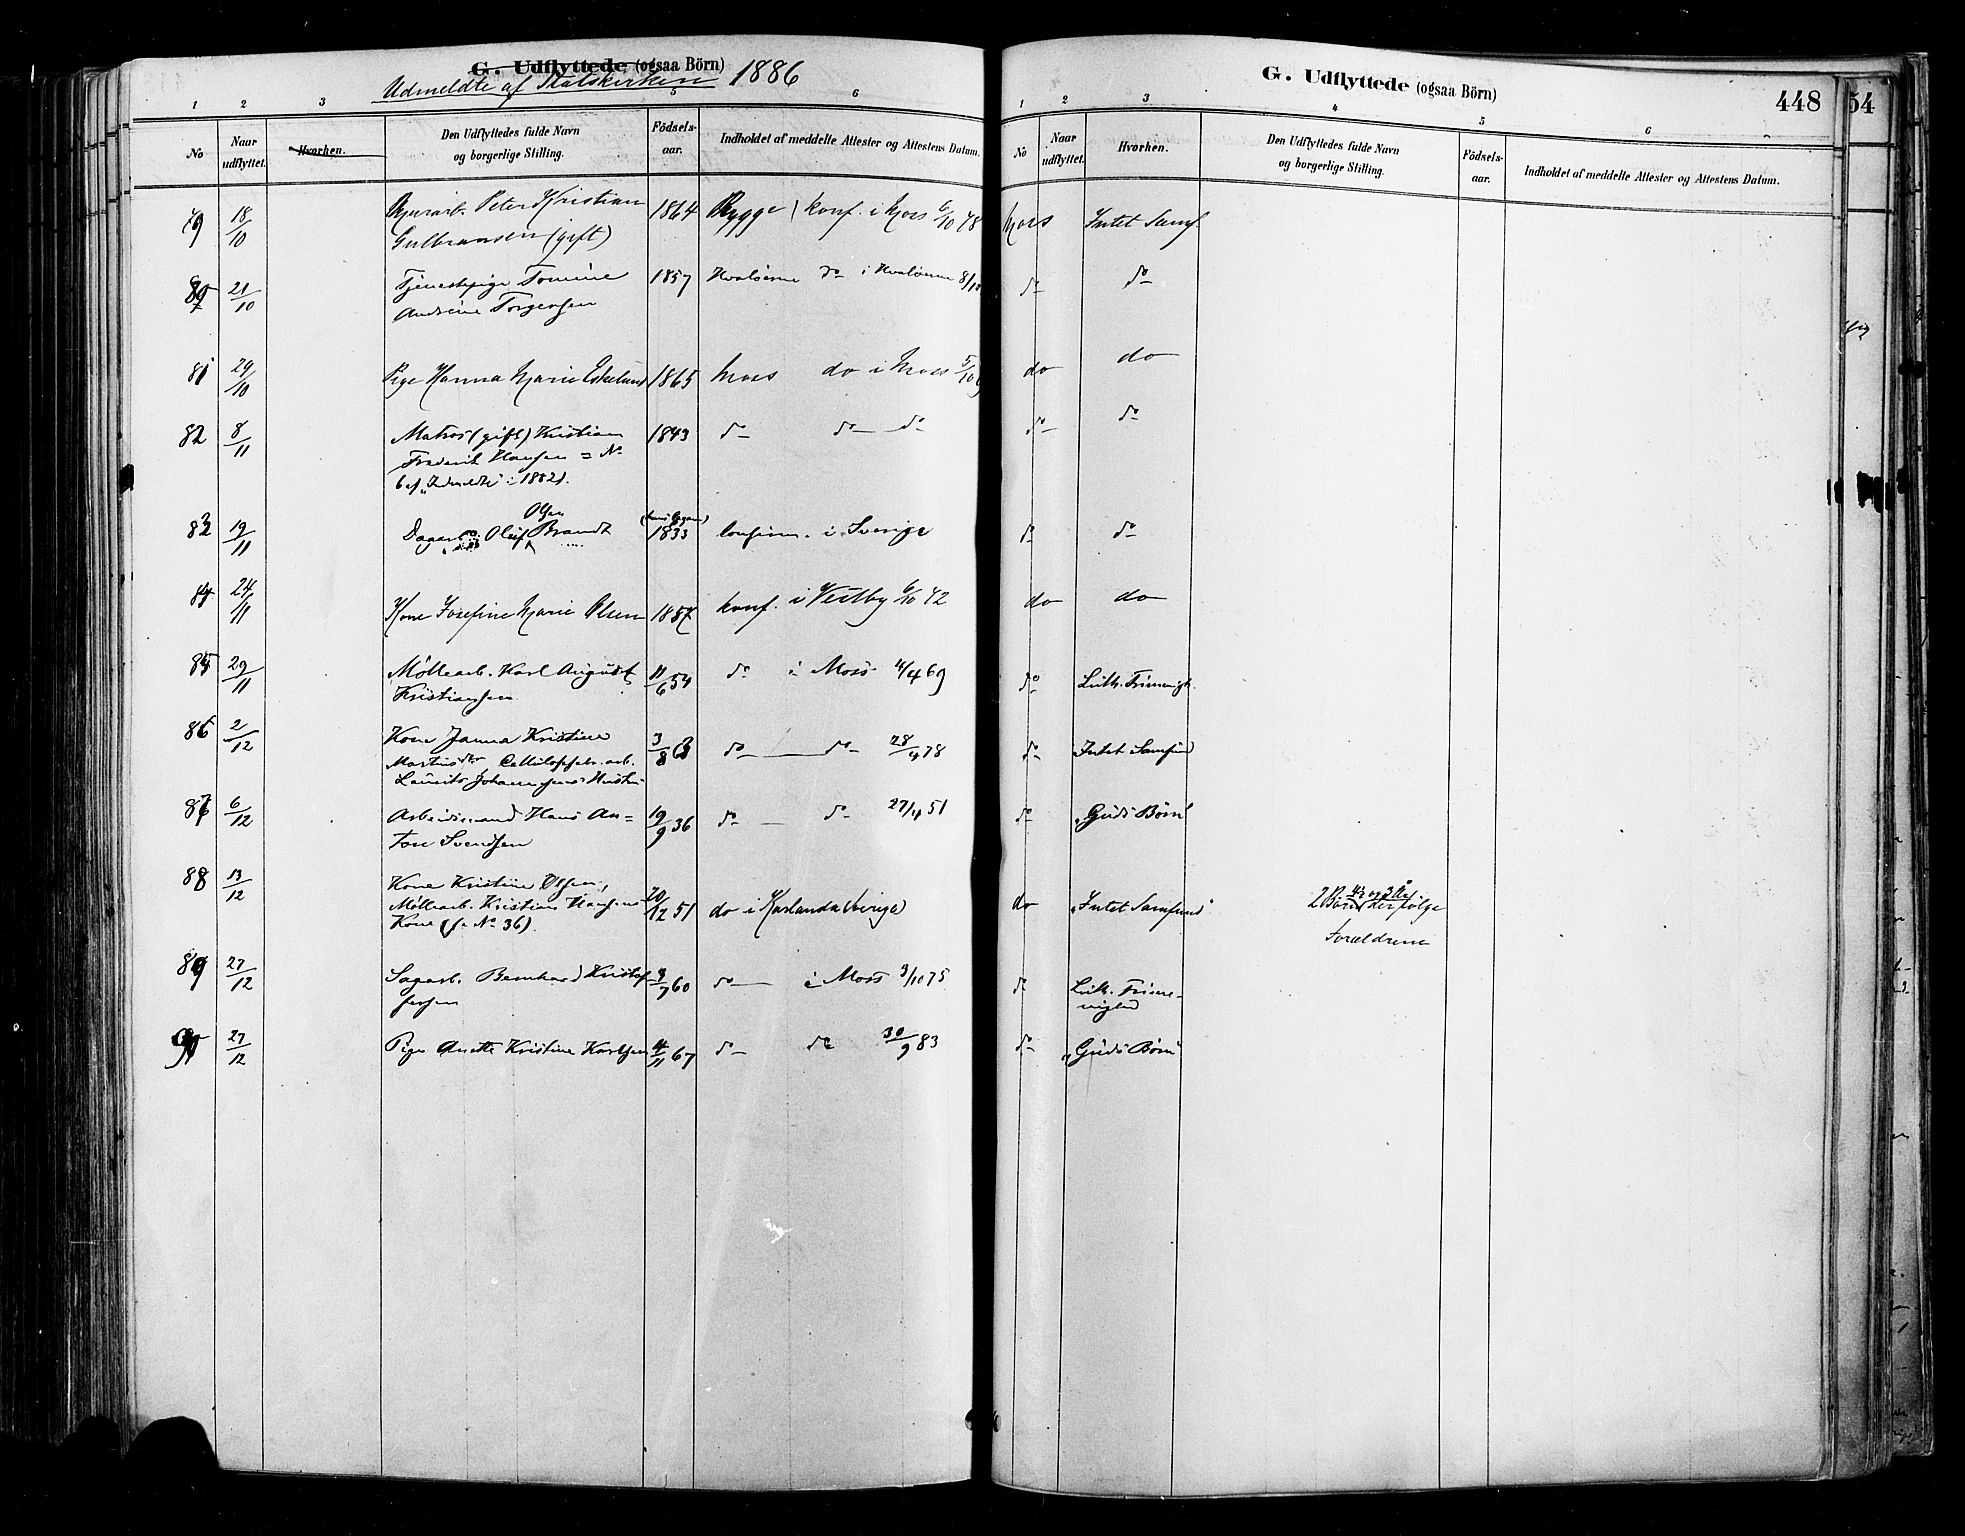 G. Udflyttede (ogsaa Börn)
Udmeldte af Statskirken 1886
1 2 3 5 6
No
Naar udflyttet.
Hvorhen.
Den Udflyttedes fulde Navn og borgerlige Stilling.
Födsels-aar.
Indholdet af meddelte Attester og Attestens Datum.
G. Udflyttede (ogsaa Börn)
448
54
1 2 3 4 5 6
No
Naar udflyttet.
Hvorhen.
Den Udflyttedes fulde Navn og borgerlige Stilling.
Födsels-aar.
Indholdet af meddelte Attester og Attestens Datum.
79 18/10 Peter Kristian 1864 Rygge konf. i Moss 6/10 78 Moss Intet Samf.
Gulbransen (gift)
80 21/10 Tjenestepige Tomine 1857 Hvaløerne do i Hvaløerne 8/10 do do
Andrine Torgersen
81 29/10 Pige Hanna Marie Eskelund 1865 Moss do i Moss 5/10 do do
82 8/11 Matros (gift) Kristian 1843 do do do do do
Frederik Hansen = No
6 af "Indmeldte" i 1882).
83 19/11 Dagarb. Oluf Olsen Brandt 1833 confirm. i Sverige do do
84 24/11 Kone Josefine Marie Olsen 1857 konf. i Vestby 6/10 72 do do
85 29/11 Møllearb. Karl August 11/6 54 do i Moss 11/4 69 do Luth. Frimenigh.
Kristiansen
86 2/12 Kone Janna Kristine 3/8 63 do do 28/4 78 do Intet Samfund
Martinsdtr Cellulosefabr. arb.
Laurits Johannesens Hustru
87 6/12 Arbeidsmand Hans An= 19/9 36 do do 27/4 51 do "Guds Børn"
ton Svendsen
88 13/12 Kone Kristine Olsen, 20/12 51 do i Karlanda Sverige) do "Intet Samfund" 2 Børn 4½ og 3 Aar der følge
Møllearb. Kristian Hansens
Kone (se No 36). Forældrene
89 27/12 Sagarb. Bernhard Kristof 3/7 60 do i Moss 3/10 75 do Luth. Frime-
fersen nighed
90 27/12 Pige Anette Kristine Karlsen 4/11 67 do do 30/9 83 do "Guds Børn"